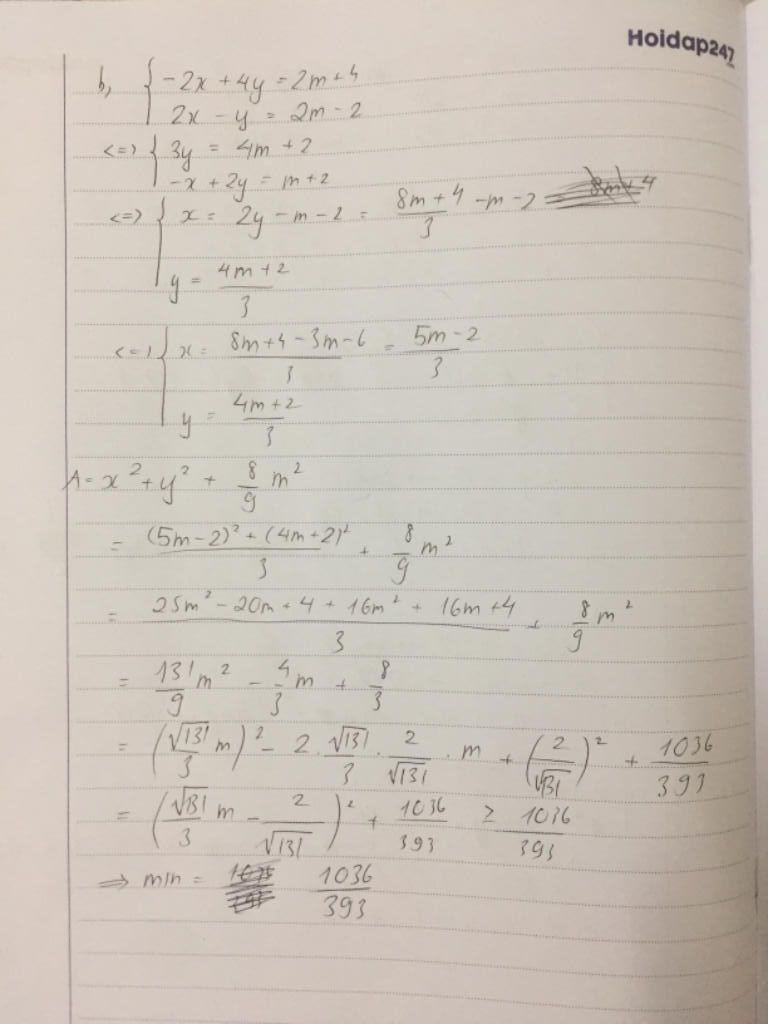 Hoidap247
b, { -2x + 4y = 2m + 4
2x - y = 2m - 2
<=> { 3y = 4m + 2
-x + 2y = m + 2
<=> { x = 2y - m - 2 = (8m + 4)/3 - m - 2
y = (4m + 2)/3
<=> { x = (8m + 4 - 3m - 6)/3 = (5m - 2)/3
y = (4m + 2)/3
A = x² + y² + 8/9 m²
= ((5m - 2)² + (4m + 2)²)/3 + 8/9 m²
= (25m² - 20m + 4 + 16m² + 16m + 4)/3 + 8/9 m²
= 131/9 m² - 4/3 m + 8/3
= (√131/3 m)² - 2 . √131/3 . 2/√131 . m + (2/√131)² + 1036/393
= (√131/3 m - 2/√131)² + 1036/393 ≥ 1036/393
=> min = 1036/393